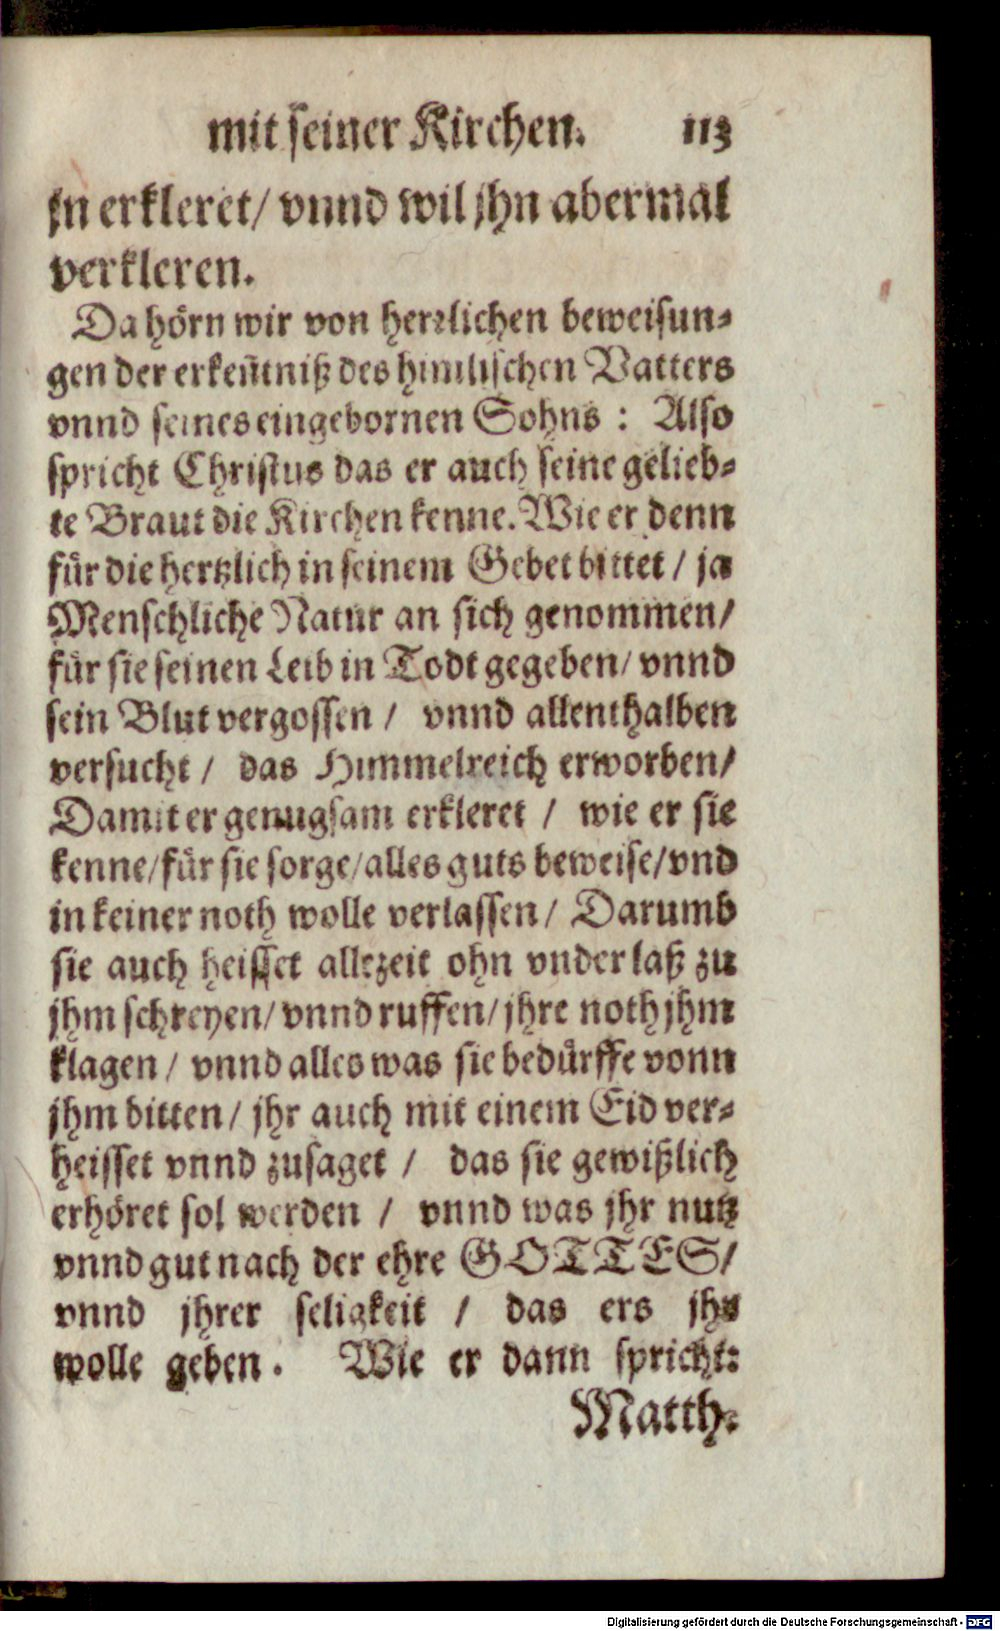 mit seiner Kirchen. 113
jn erkleret/ vnnd wil jhn abermal
verkleren.
Da hörn wir von herrlichen beweisun-
gen der erkeñtniß des himlischen Vatters
vnnd seines eingebornen Sohns : Also
spricht Christus das er auch seine gelieb-
te Braut die Kirchen kenne. Wie er denn
für die hertzlich in seinem Gebet bittet / ja
Menschliche Natur an sich genommen/
für sie seinen Leib in Todt gegeben/ vnnd
sein Blut vergossen / vnnd allenthalben
versucht / das Himmelreich erworben/
Damit er genugsam erkleret / wie er sie
kenne/für sie sorge/alles guts beweise/vnd
in keiner noth wolle verlassen/ Darumb
sie auch heisset allezeit ohn vnderlaß zu
jhm schreyen/ vnnd ruffen/ jhre noth jhm
klagen / vnnd alles was sie bedürffe vonn
jhm bitten/ jhr auch mit einem Eid ver-
heisset vnnd zusaget / das sie gewißlich
erhöret sol werden / vnnd was jhr nutz
vnnd gut nach der ehre GOTTES/
vnnd jhrer seligkeit / das ers jhr
wolle geben. Wie er dann spricht:
Matth.
Digitalisierung gefördert durch die Deutsche Forschungsgemeinschaft - DFG